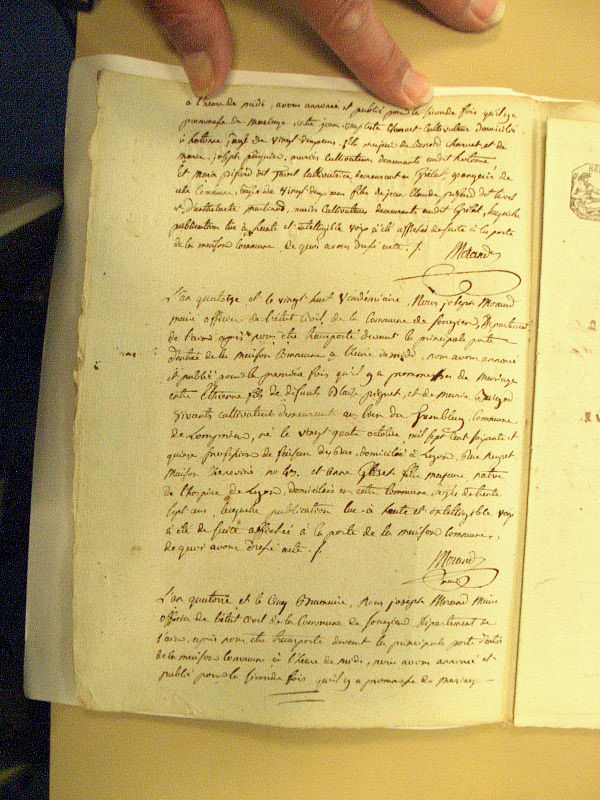 à l'heure de midi, avons annoncé et publié pour la seconde fois qu'il y a
promesse de mariage, entre jean Baptiste Charvet Cultivateur domicilié
à hotonne âgé de vingt deux ans, fils majeur de Benoit Charvet et de
marie joseph mariés cultivateurs, demeurants audit hotonne
Et Marie dit Cultivatrice demeurant en
cette Commune, âgée de vingt deux ans fille de jean Claude dit
et d'anthelmette mariés Cultivateurs demeurants audit laquelle
publication lue à haute et intelligible voix a été affichée de suite à la porte
de la maison commune, de quoi avons dressé acte. /.
Morand
L'an quatorze et le vingt huit Vendémiaire, Nous joseph Morand
maire officier de l'état civil de la Commune de Songieu, Département
de l'ain après nous être transporté devant la principale porte
d'entrée de la maison Commune à l'heure de midi, nous avons annoncé
et publié pour la première fois qu'il y a promesses de mariage
entre Etienne fils de défunts Blaise et de Marie
Vivants cultivateurs demeurants au lieu du Commune
de né le vingt quatre octobre, mil sept cent soixante et
quinze profession de domicilié à Lyon, rue
Maison no et anne fille majeure native
de l'hospice de Lyon, domiciliée en cette Commune, âgée de trente
sept ans, laquelle publication lue à haute et intelligible voix
a été de suite affichée à la porte de la maison Commune,
de quoi avons dressé acte. /.
Morand
maire
L'an quatorze et le Cinq Brumaire, Nous joseph Morand Maire
officier de l'état civil de la Commune de Songieu, département de
l'ain, après nous être transporté devant la principale porte d'entrée
de la maison Commune à l'heure de midi, nous avons annoncé et
publié pour la seconde fois qu'il y a promesse de mariage